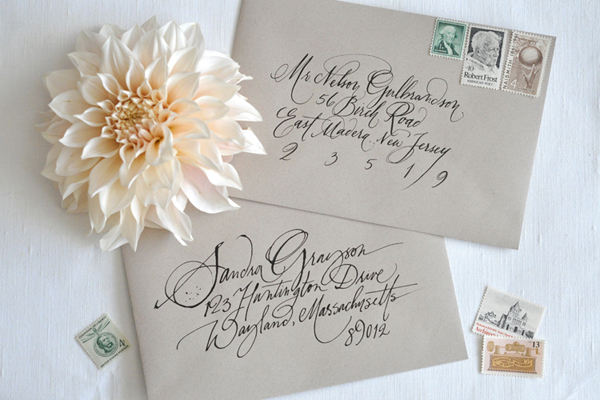 Mr Nelson Gulbrandson
56 Birch Road
East Madera, New Jersey
2 3 5 1 9
Robert Frost
Sandra Grayson
123 Huntington Drive
Wayland, Massachusetts
89012
4c
13c